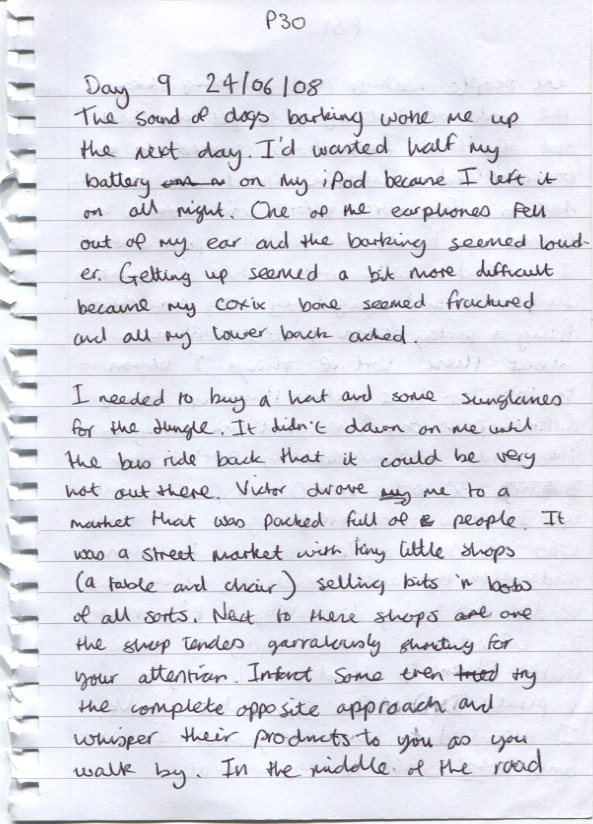 P30
Day 9 24/06/08
The sound of dogs barking woke me up
the next day. I'd wasted half my
battery on my iPod because I left it
on all night. One of the earphones fell
out of my ear and the barking seemed loud-
er. Getting up seemed a bit more difficult
because my coxix bone seemed fractured
and all my lower back ached.
I needed to buy a hat and some sunglasses
for the Jungle. It didn't dawn on me until
the bus ride back that it could be very
hot out there. Victor drove my me to a
market that was packed full of people. It
was a street market with tiny little shops
(a table and chair) selling bits 'n bobs
of all sorts. Next to these shops are are
the shop tendes garralously shouting for
your attention. Infact some even tried try
the complete opposite approach and
whisper their products to you as you
walk by. In the middle of the road